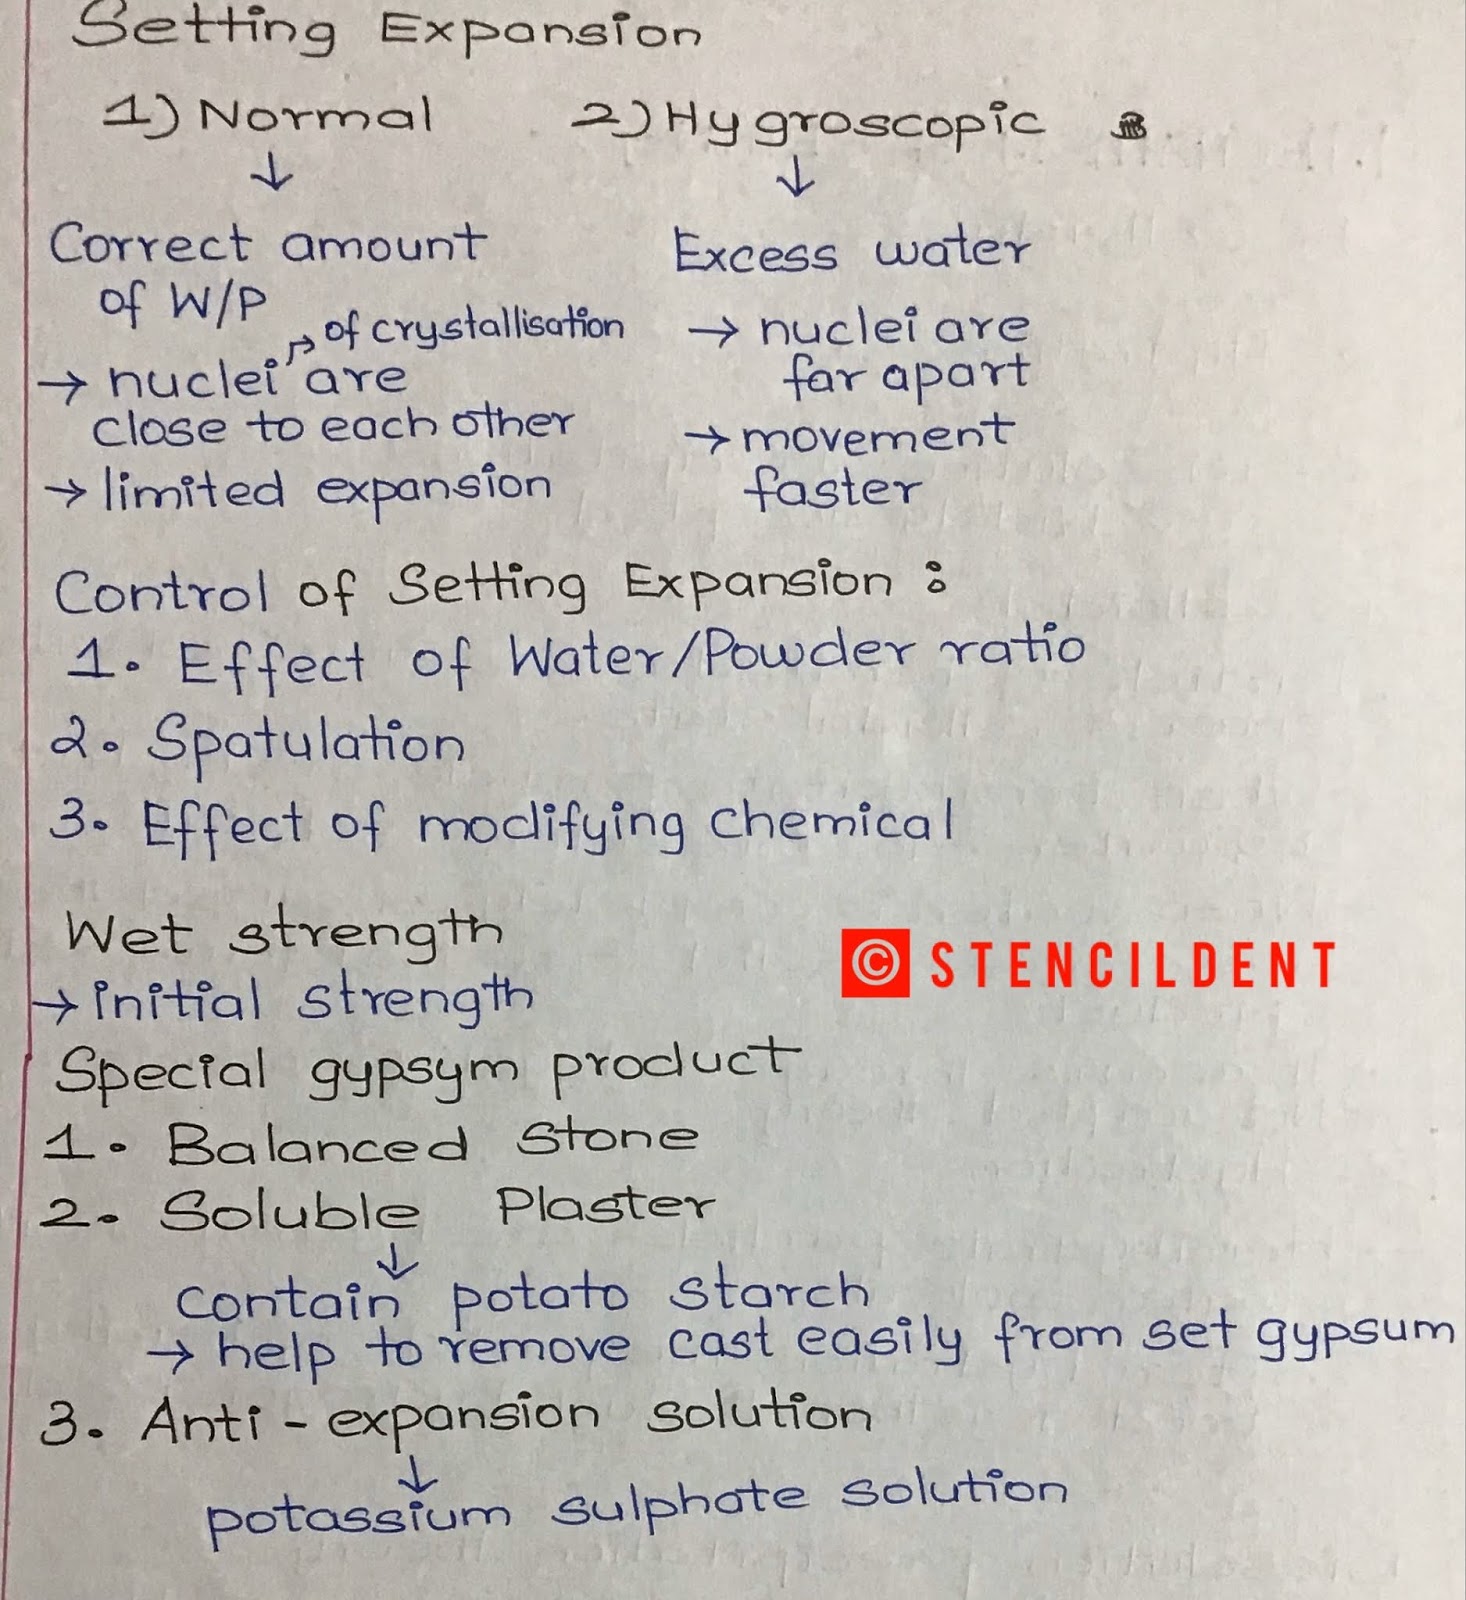 Setting Expansion
1) Normal 2) Hygroscopic
↓ ↓
Correct amount
of W/P
→ nuclei are
of crystallisation
close to each other
→ limited expansion
Excess water
→ nuclei are
far apart
→ movement
faster
Control of Setting Expansion :
1. Effect of Water/Powder ratio
2. Spatulation
3. Effect of modifying chemical
Wet strength
→ initial strength
© STENCILDENT
Special gypsym product
1. Balanced stone
2. Soluble Plaster
↓
contain potato starch
→ help to remove cast easily from set gypsum
3. Anti-expansion solution
↓
potassium sulphate solution